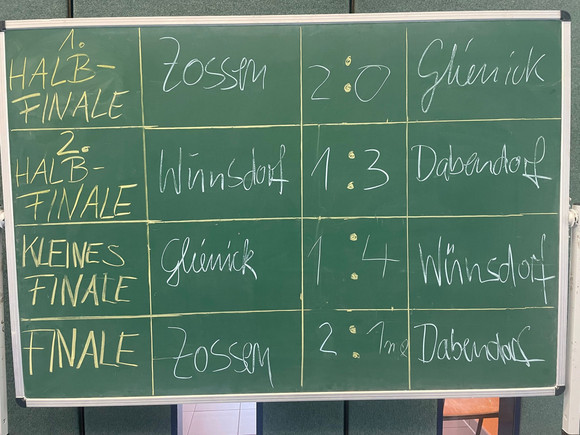 1. HALB-FINALE Zossen 2:0 Glienick
2. HALB-FINALE Wünsdorf 1:3 Dabendorf
KLEINES FINALE Glienick 1:4 Wünsdorf
FINALE Zossen 2:1 Dabendorf